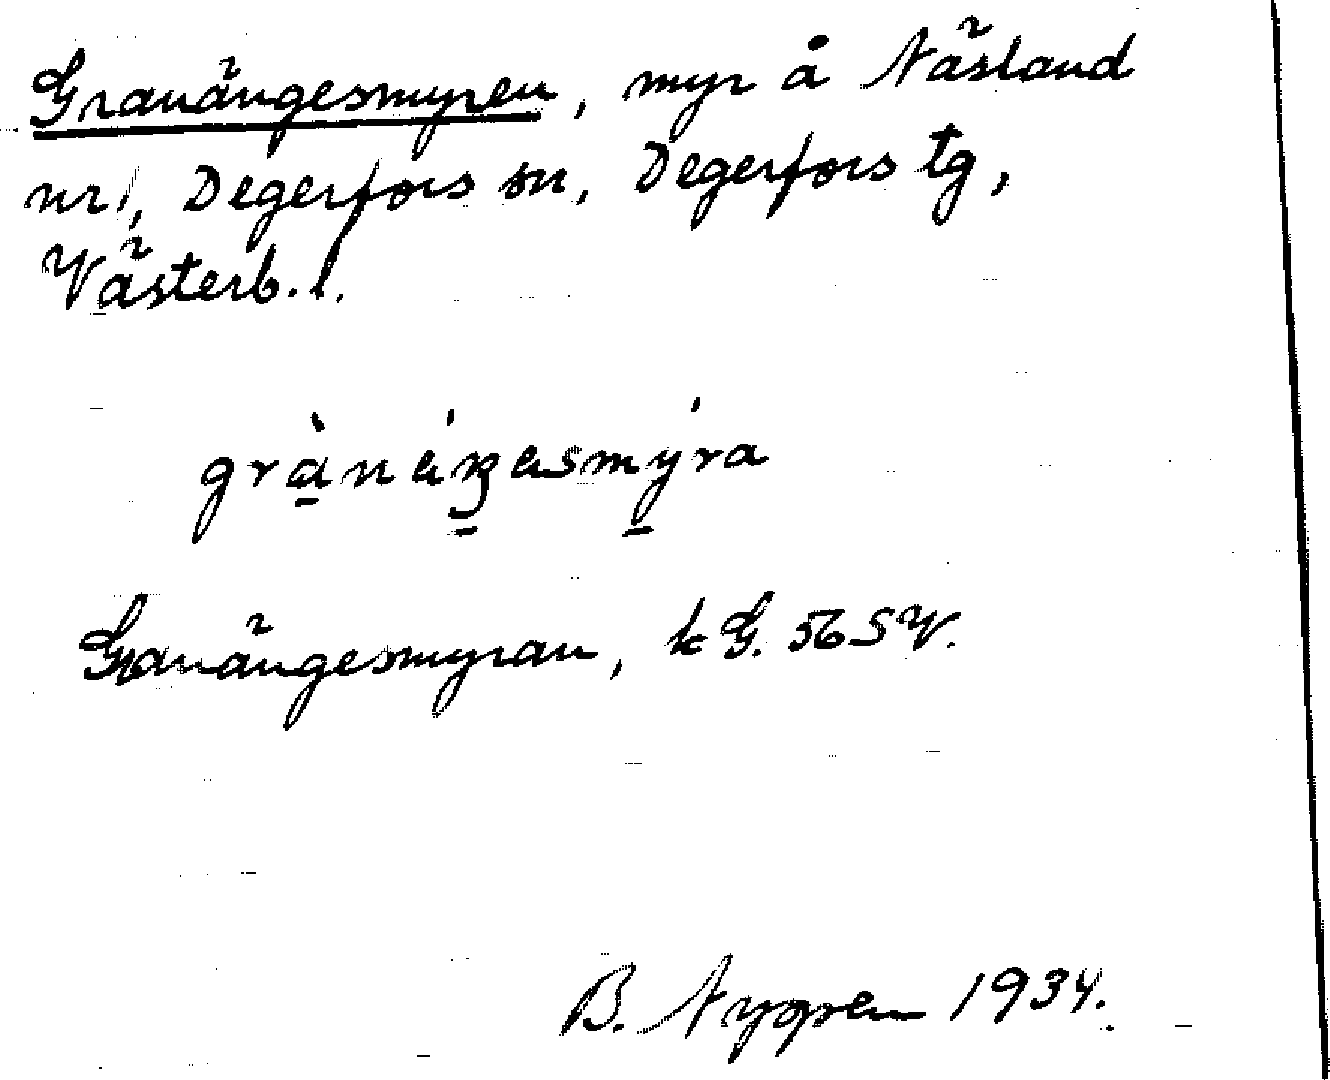 Granängesmyren, myr å Näsland
nr 1, Degerfors sn, Degerfors tg,
Västerb. l.
grànáŋasmýra
Granängesmyran, k G. 56 SV.
B. Nygren 1934.